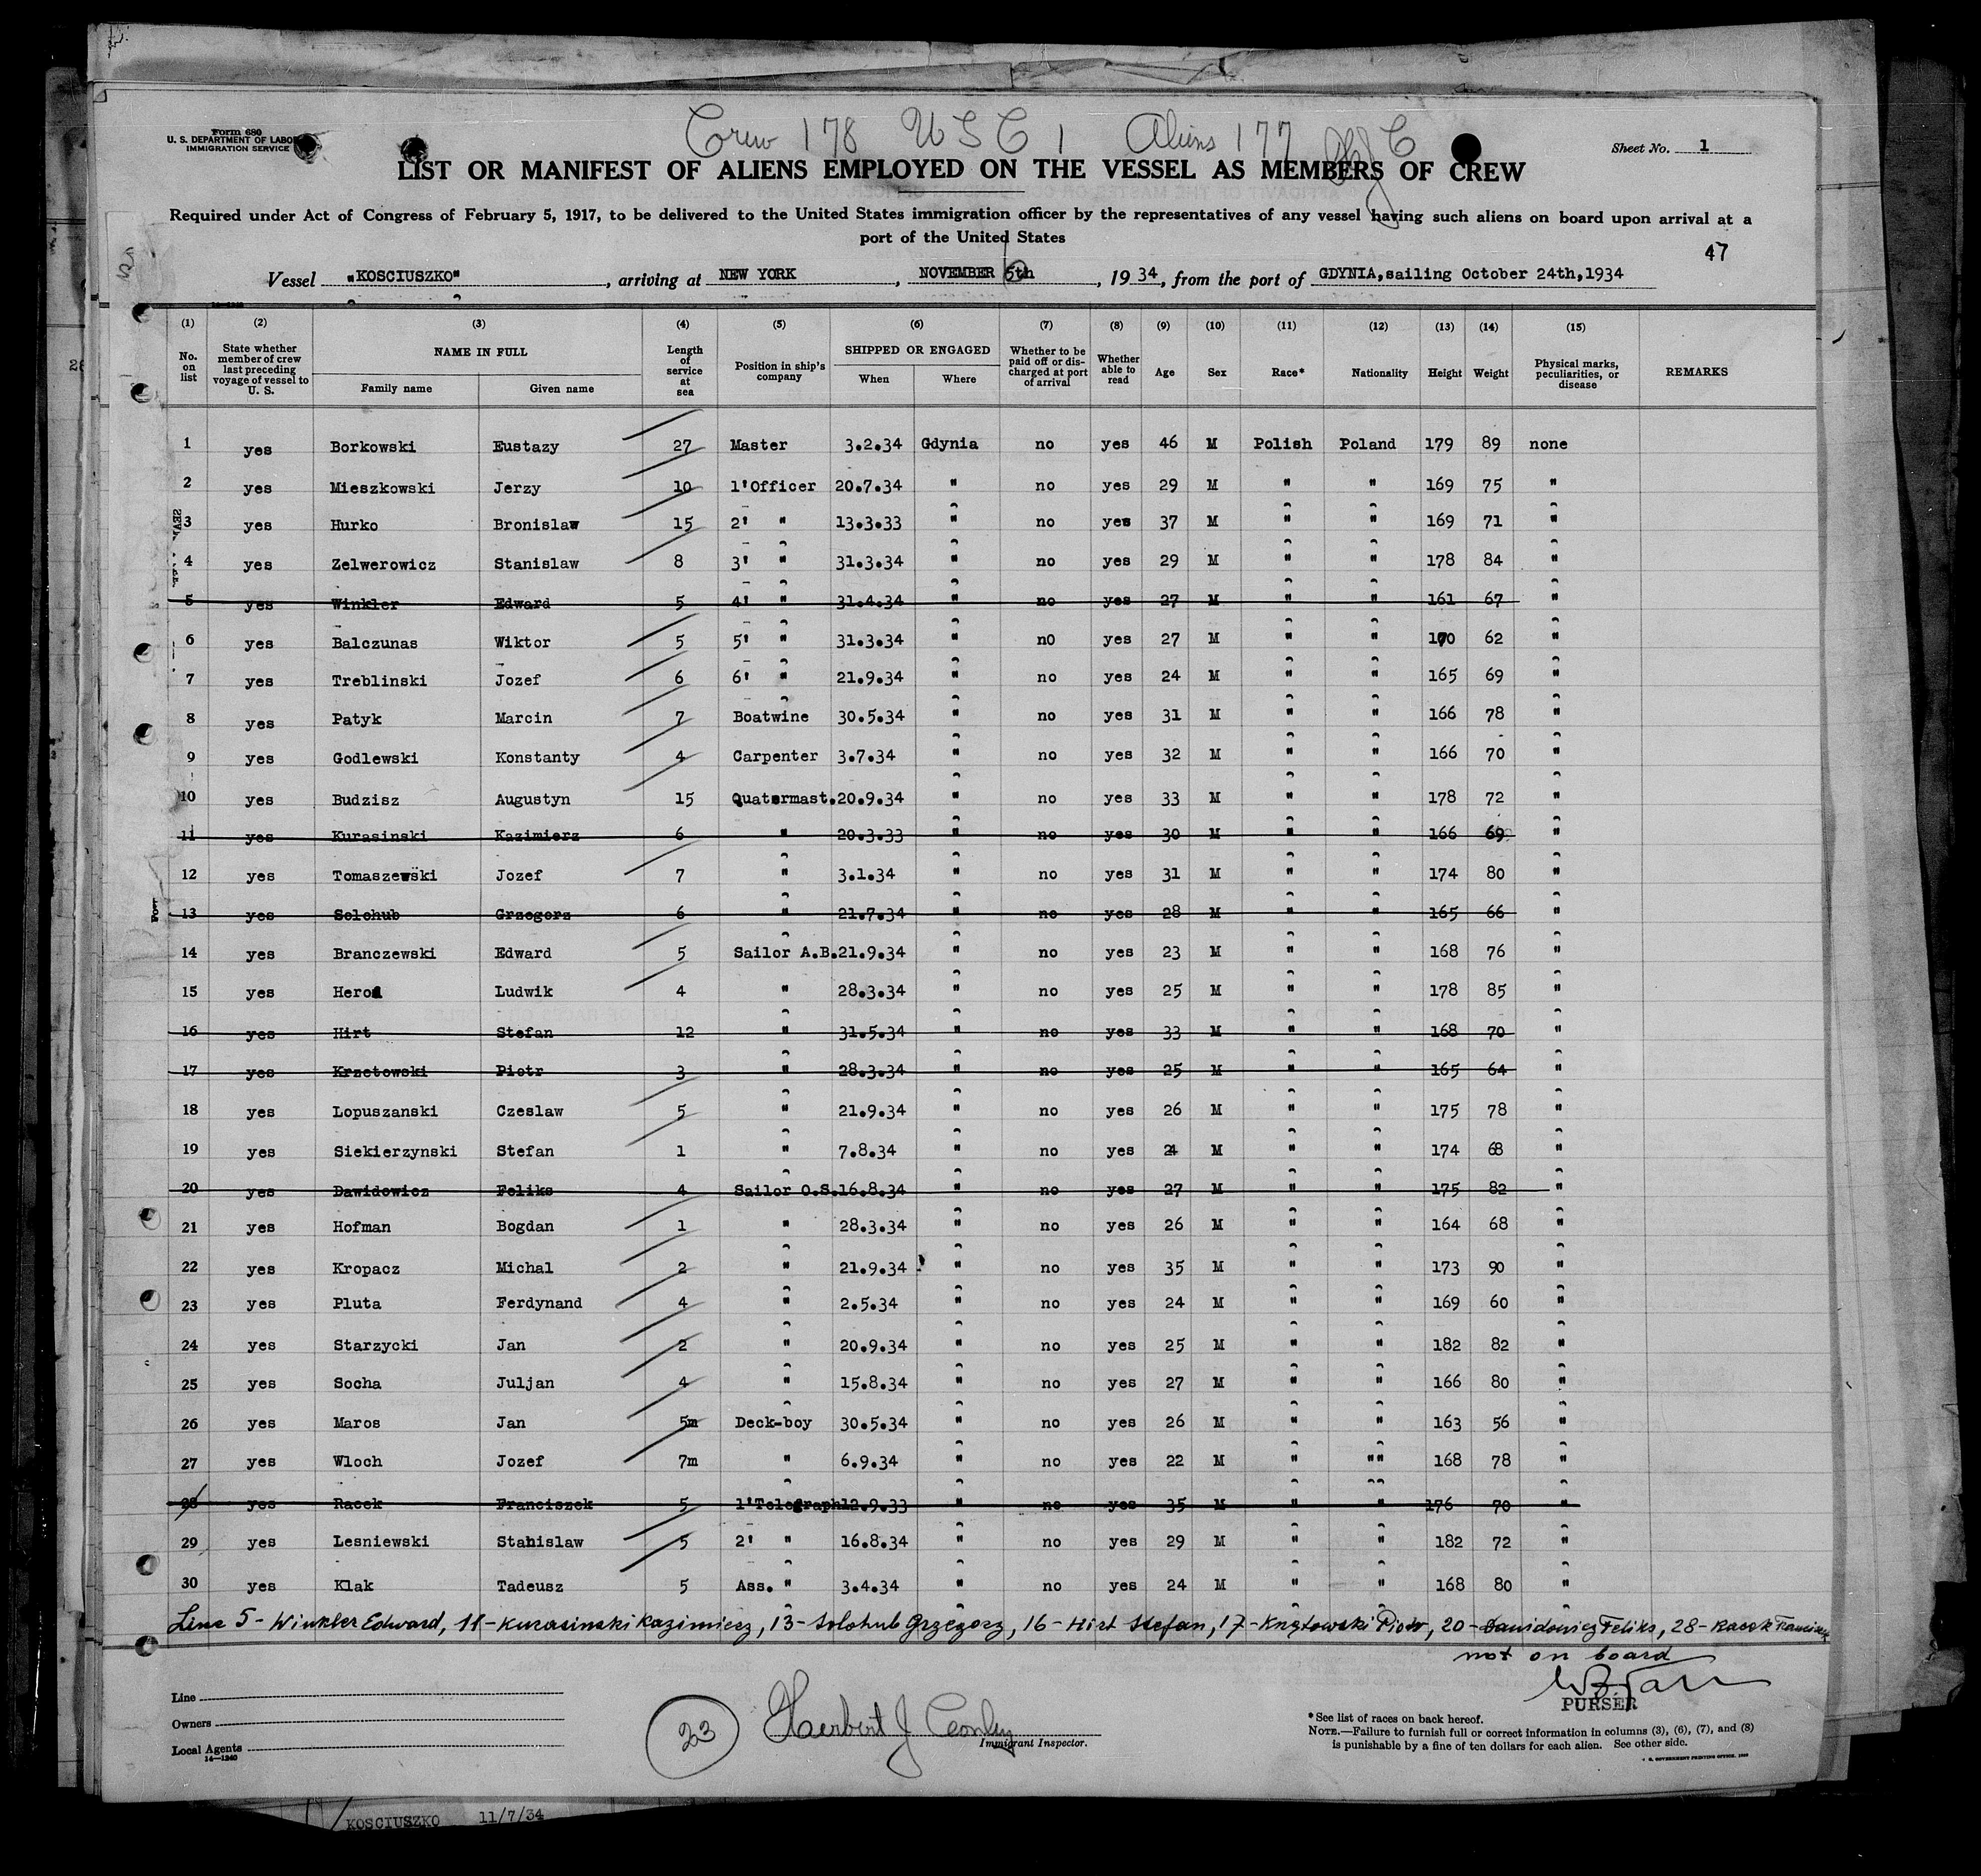 Crew 178 USC 1 Aliens 177
Form 680
U. S. DEPARTMENT OF LABOR
IMMIGRATION SERVICE
Sheet No. 1
LIST OR MANIFEST OF ALIENS EMPLOYED ON THE VESSEL AS MEMBERS OF CREW
Required under Act of Congress of February 5, 1917, to be delivered to the United States immigration officer by the representatives of any vessel having such aliens on board upon arrival at a
port of the United States
47
Vessel "KOSCIUSZKO", arriving at NEW YORK, NOVEMBER 5th, 1934, from the port of GDYNIA,sailing October 24th,1934
(1) (2) (3) (4) (5) (6) (7) (8) (9) (10) (11) (12) (13) (14) (15)
No. on list State whether member of crew last preceding voyage of vessel to U. S. NAME IN FULL Family name Given name Length of service at sea Position in ship's company SHIPPED OR ENGAGED When Where Whether to be paid off or discharged at port of arrival Whether able to read Age Sex Race* Nationality Height Weight Physical marks, peculiarities, or disease REMARKS
1 yes Borkowski Eustazy 27 Master 3.2.34 Gdynia no yes 46 M Polish Poland 179 89 none
2 yes Mieszkowski Jerzy 10 1'Officer 20.7.34 " no yes 29 M " " 169 75 "
3 yes Hurko Bronislaw 15 2' " 13.3.33 " no yes 37 M " " 169 71 "
4 yes Zelwerowicz Stanislaw 8 3' " 31.3.34 " no yes 29 M " " 178 84 "
5 yes Winkler Edward 5 4' " 31.4.34 " no yes 27 M " " 161 67 "
6 yes Balczunas Wiktor 5 5' " 31.3.34 " no yes 27 M " " 170 62 "
7 yes Treblinski Jozef 6 6' " 21.9.34 " no yes 24 M " " 165 69 "
8 yes Patyk Marcin 7 Boatwine 30.5.34 " no yes 31 M " " 166 78 "
9 yes Godlewski Konstanty 4 Carpenter 3.7.34 " no yes 32 M " " 166 70 "
10 yes Budzisz Augustyn 15 Quatermast.20.9.34 " no yes 33 M " " 178 72 "
11 yes Kurasinski Kazimierz 6 " 20.3.33 " no yes 30 M " " 166 69 "
12 yes Tomaszewski Jozef 7 " 3.1.34 " no yes 31 M " " 174 80 "
13 yes Solohub Grzegorz 6 " 21.7.34 " no yes 28 M " " 165 66 "
14 yes Branczewski Edward 5 Sailor A.B.21.9.34 " no yes 23 M " " 168 76 "
15 yes Ludwik 4 " 28.3.34 " no yes 25 M " " 178 85 "
16 yes Hirt Stefan 12 " 31.5.34 " no yes 33 M " " 168 70 "
17 yes Krzetowski Piotr 3 " 28.3.34 " no yes 25 M " " 165 64 "
18 yes Lopuszanski Czeslaw 5 " 21.9.34 " no yes 26 M " " 175 78 "
19 yes Siekierzynski Stefan 1 " 7.8.34 " no yes 24 M " " 174 68 "
20 yes Dawidowicz Feliks 4 Sailor O.S.16.8.34 " no yes 27 M " " 175 82 "
21 yes Hofman Bogdan 1 " 28.3.34 " no yes 26 M " " 164 68 "
22 yes Kropacz Michal 2 " 21.9.34 " no yes 35 M " " 173 90 "
23 yes Pluta Ferdynand 4 " 2.5.34 " no yes 24 M " " 169 60 "
24 yes Starzycki Jan 2 " 20.9.34 " no yes 25 M " " 182 82 "
25 yes Socha Juljan 4 " 15.8.34 " no yes 27 M " " 166 80 "
26 yes Maros Jan 5m Deck-boy 30.5.34 " no yes 26 M " " 163 56 "
27 yes Wloch Jozef 7m " 6.9.34 " no yes 22 M " "" 168 78 "
28 yes Racek Franciszek 5 1'Telegraph12.9.33 " no yes 35 M " " 176 70 "
29 yes Lesniewski Stanislaw 5 2' " 16.8.34 " no yes 29 M " " 182 72 "
30 yes Klak Tadeusz 5 Ass. " 3.4.34 " no yes 24 M " " 168 80 "
Line 5 - Winkler Edward, 11 - Kurasinski Kazimierz, 13 - Solohub Grzegorz, 16 - Hirt Stefan, 17 - Krzetowski Piotr, 20 - Dawidowicz Feliks, 28 - Racek Franciszek
not on board
PURSER
Line
Owners
Local Agents
14-1240
23
Herbert J Conley
Immigrant Inspector.
*See list of races on back hereof.
NOTE.—Failure to furnish full or correct information in columns (3), (6), (7), and (8)
is punishable by a fine of ten dollars for each alien. See other side.
KOSCIUSZKO 11/7/34